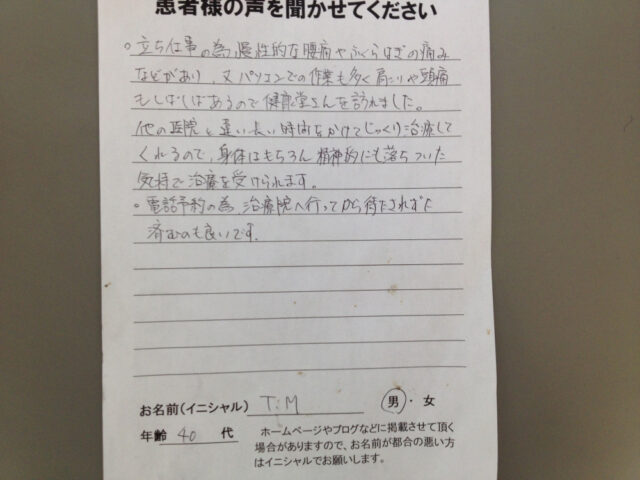 患者様の声を聞かせてください
○立ち仕事の為、慢性的な腰痛やふくらはぎの痛み
などがあり、又パソコンでの作業も多く肩こりや頭痛
もしばしばあるので健康堂さんを訪れました。
他の医院と違い長い時間をかけてじっくり治療して
くれるので、身体はもちろん精神的にも落ちついた
気持で治療を受けられます。
○電話予約の為、治療院へ行ってから待たされずに
済むのも良いです。
お名前(イニシャル) T:M 男・女
年齢 40 代
ホームページやブログなどに掲載させて頂く
場合がありますので、お名前が都合の悪い方
はイニシャルでお願いします。